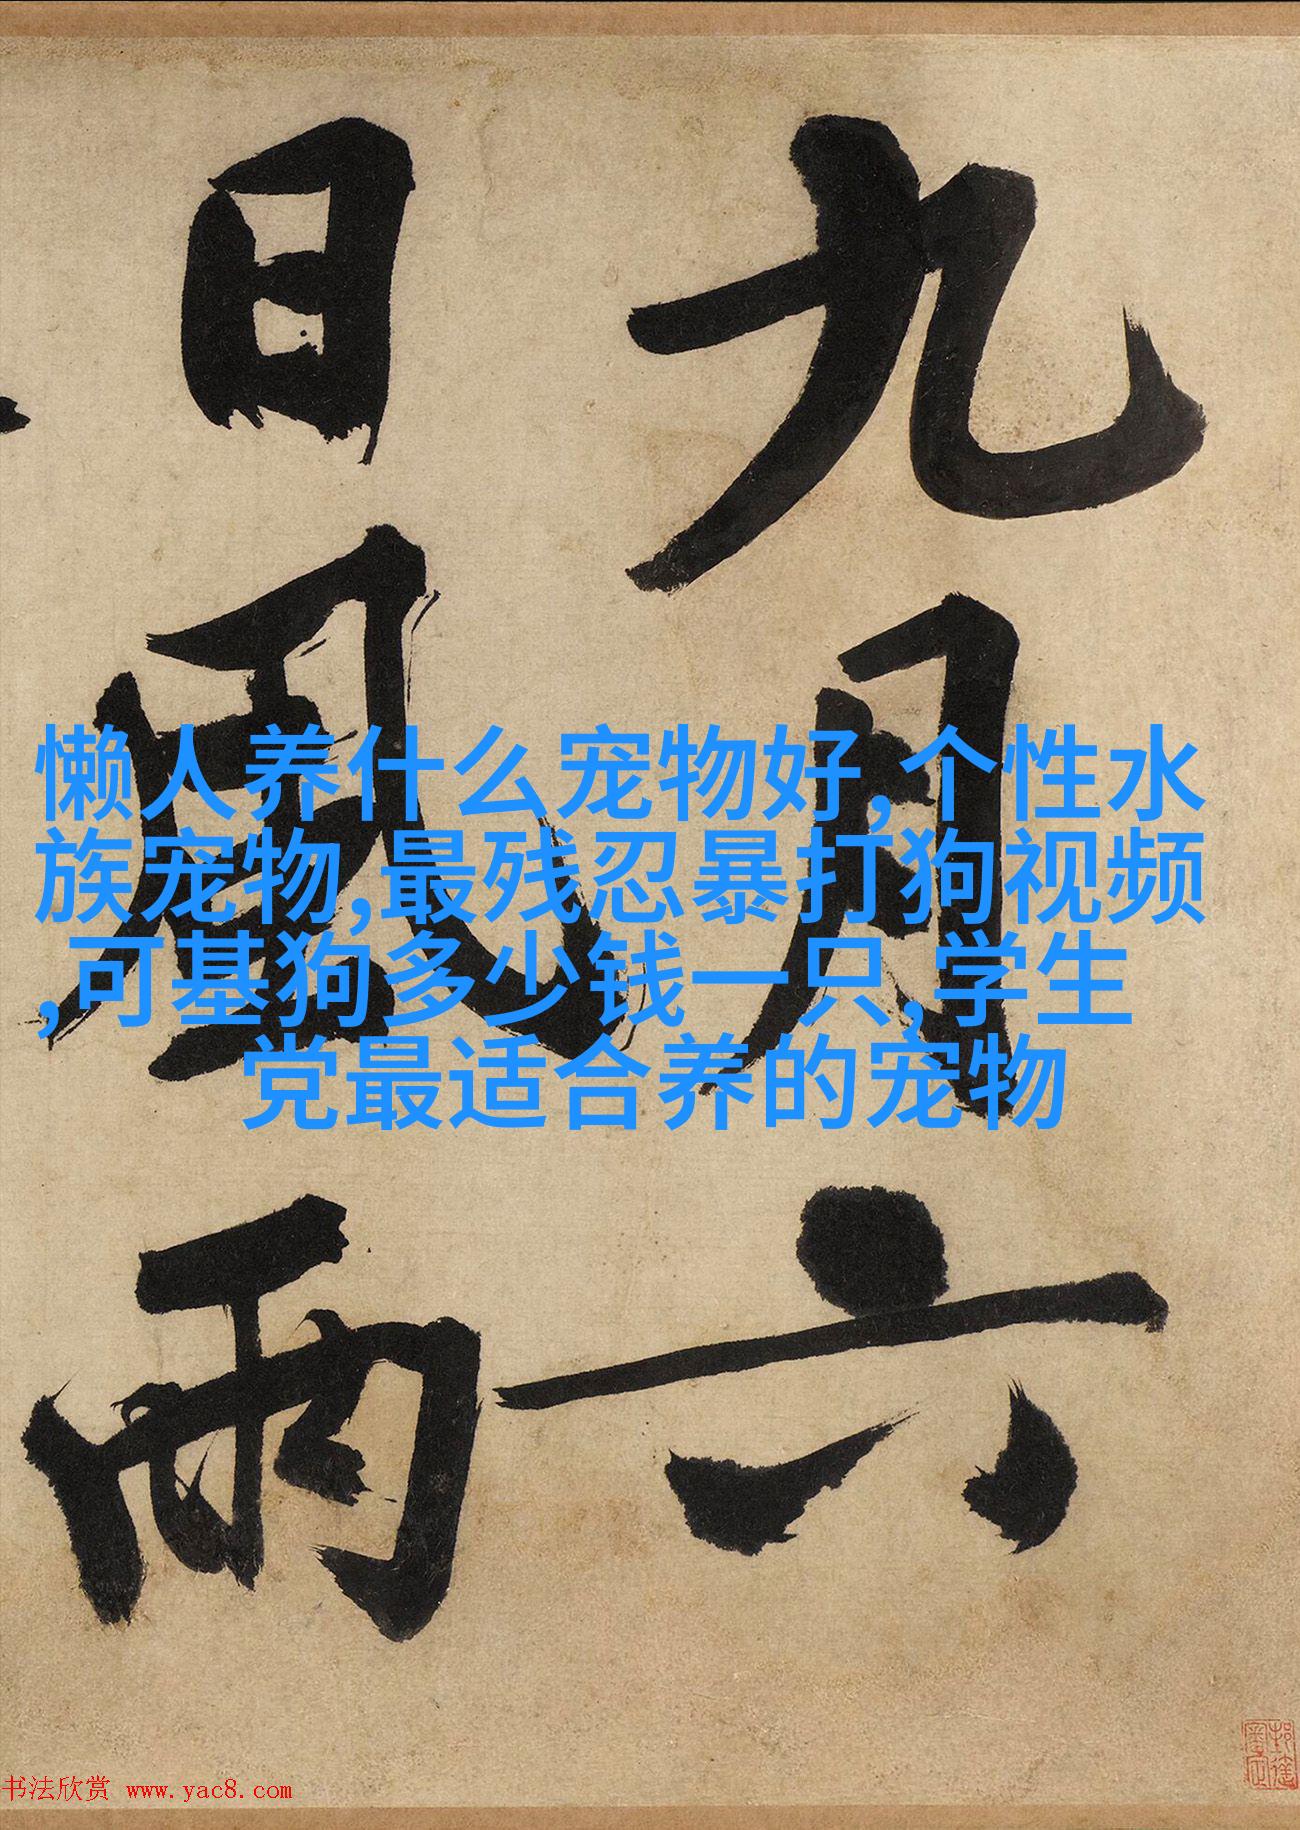 九月六
日風雨
懒人养什么宠物好,个性水
族宠物,最残忍暴打狗视频
,可基狗多少钱一只,学生
党最适合养的宠物
书法欣赏 www.yac8.com